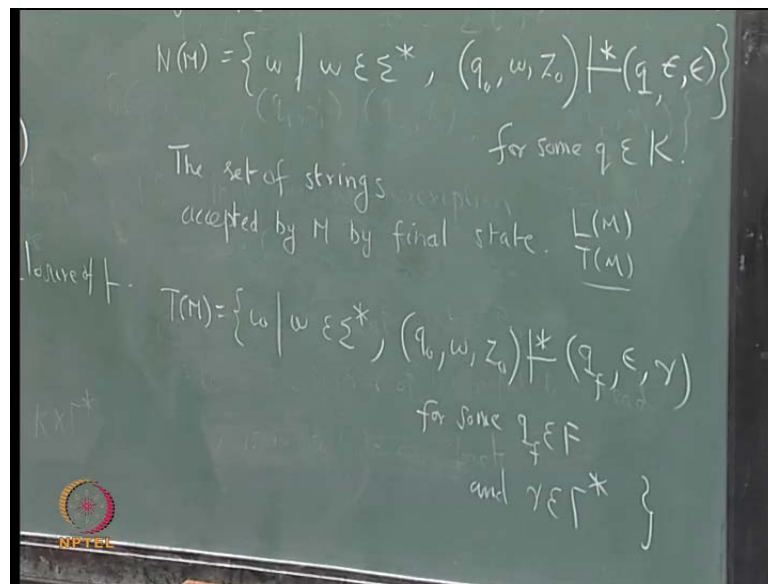 N(M) = { w | w ε Σ*, (q₀, w, Z₀) |-* (q, ε, ε) }
for some q ε K.
The set of strings
accepted by M by final state. L(M)
T(M)
losure of ⊢.
T(M) = { w | w ε Σ*, (q₀, w, Z₀) |-* (q_f, ε, γ)
for some q_f ε F
K × Γ*
and γ ε Γ* }
NPTEL